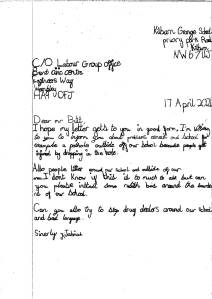 Kilburn Grange School
Priory Park Road
Kilburn
NW6 7UJ
C/O Labour Group office
Brent civic centre
Engineers Way
Wembley
HA9 0FJ
17 April 202
Dear mr Butt
I hope my letter gets to you in good form, I'm writing
to you to inform you about problems around our School for
example a pothole outside off our school because people get
injured by dropping in the hole.
Also people litter around our school and outside of our
I don't know if this is to much to ask but can
you please install some rubbish bins around the
of our School.
Can you also try to stop drug dealers around our school
and bad language
Sinerly